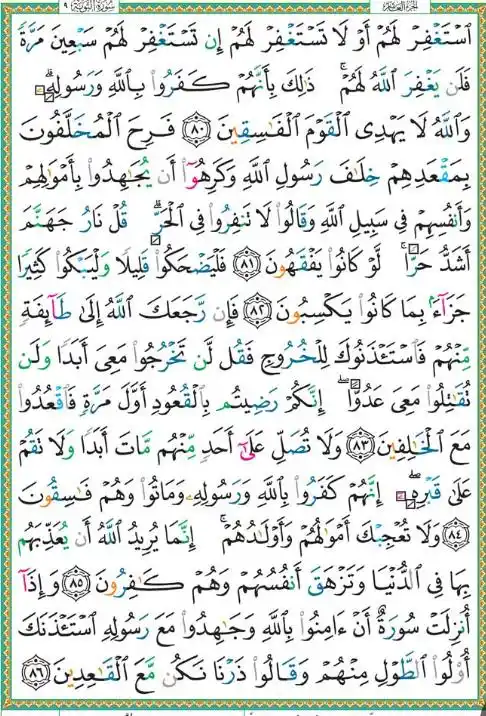 الجزء العاشر سورة التوبة ٩
ٱسۡتَغۡفِرۡ لَهُمۡ أَوۡ لَا تَسۡتَغۡفِرۡ لَهُمۡ إِن تَسۡتَغۡفِرۡ لَهُمۡ سَبۡعِينَ مَرَّةٗ
فَلَن يَغۡفِرَ ٱللَّهُ لَهُمۡۚ ذَٰلِكَ بِأَنَّهُمۡ كَفَرُواْ بِٱللَّهِ وَرَسُولِهِۦۗ
وَٱللَّهُ لَا يَهۡدِي ٱلۡقَوۡمَ ٱلۡفَٰسِقِينَ ٨٠ فَرِحَ ٱلۡمُخَلَّفُونَ
بِمَقۡعَدِهِمۡ خِلَٰفَ رَسُولِ ٱللَّهِ وَكَرِهُوٓاْ أَن يُجَٰهِدُواْ بِأَمۡوَٰلِهِمۡ
وَأَنفُسِهِمۡ فِي سَبِيلِ ٱللَّهِ وَقَالُواْ لَا تَنفِرُواْ فِي ٱلۡحَرِّۗ قُلۡ نَارُ جَهَنَّمَ
أَشَدُّ حَرّٗاۚ لَّوۡ كَانُواْ يَفۡقَهُونَ ٨١ فَلۡيَضۡحَكُواْ قَلِيلٗا وَلۡيَبۡكُواْ كَثِيرٗا
جَزَآءَۢ بِمَا كَانُواْ يَكۡسِبُونَ ٨٢ فَإِن رَّجَعَكَ ٱللَّهُ إِلَىٰ طَآئِفَةٖ
مِّنۡهُمۡ فَٱسۡتَـٔۡذَنُوكَ لِلۡخُرُوجِ فَقُل لَّن تَخۡرُجُواْ مَعِيَ أَبَدٗا وَلَن
تُقَٰتِلُواْ مَعِيَ عَدُوًّاۖ إِنَّكُمۡ رَضِيتُم بِٱلۡقُعُودِ أَوَّلَ مَرَّةٖ فَٱقۡعُدُواْ
مَعَ ٱلۡخَٰلِفِينَ ٨٣ وَلَا تُصَلِّ عَلَىٰٓ أَحَدٖ مِّنۡهُم مَّاتَ أَبَدٗا وَلَا تَقُمۡ
عَلَىٰ قَبۡرِهِۦٓۖ إِنَّهُمۡ كَفَرُواْ بِٱللَّهِ وَرَسُولِهِۦ وَمَاتُواْ وَهُمۡ فَٰسِقُونَ
٨٤ وَلَا تُعۡجِبۡكَ أَمۡوَٰلُهُمۡ وَأَوۡلَٰدُهُمۡۚ إِنَّمَا يُرِيدُ ٱللَّهُ أَن يُعَذِّبَهُم
بِهَا فِي ٱلدُّنۡيَا وَتَزۡهَقَ أَنفُسُهُمۡ وَهُمۡ كَٰفِرُونَ ٨٥ وَإِذَآ
أُنزِلَتۡ سُورَةٌ أَنۡ ءَامِنُواْ بِٱللَّهِ وَجَٰهِدُواْ مَعَ رَسُولِهِ ٱسۡتَـٔۡذَنَكَ
أُوْلُواْ ٱلطَّوۡلِ مِنۡهُمۡ وَقَالُواْ ذَرۡنَا نَكُن مَّعَ ٱلۡقَٰعِدِينَ ٨٦